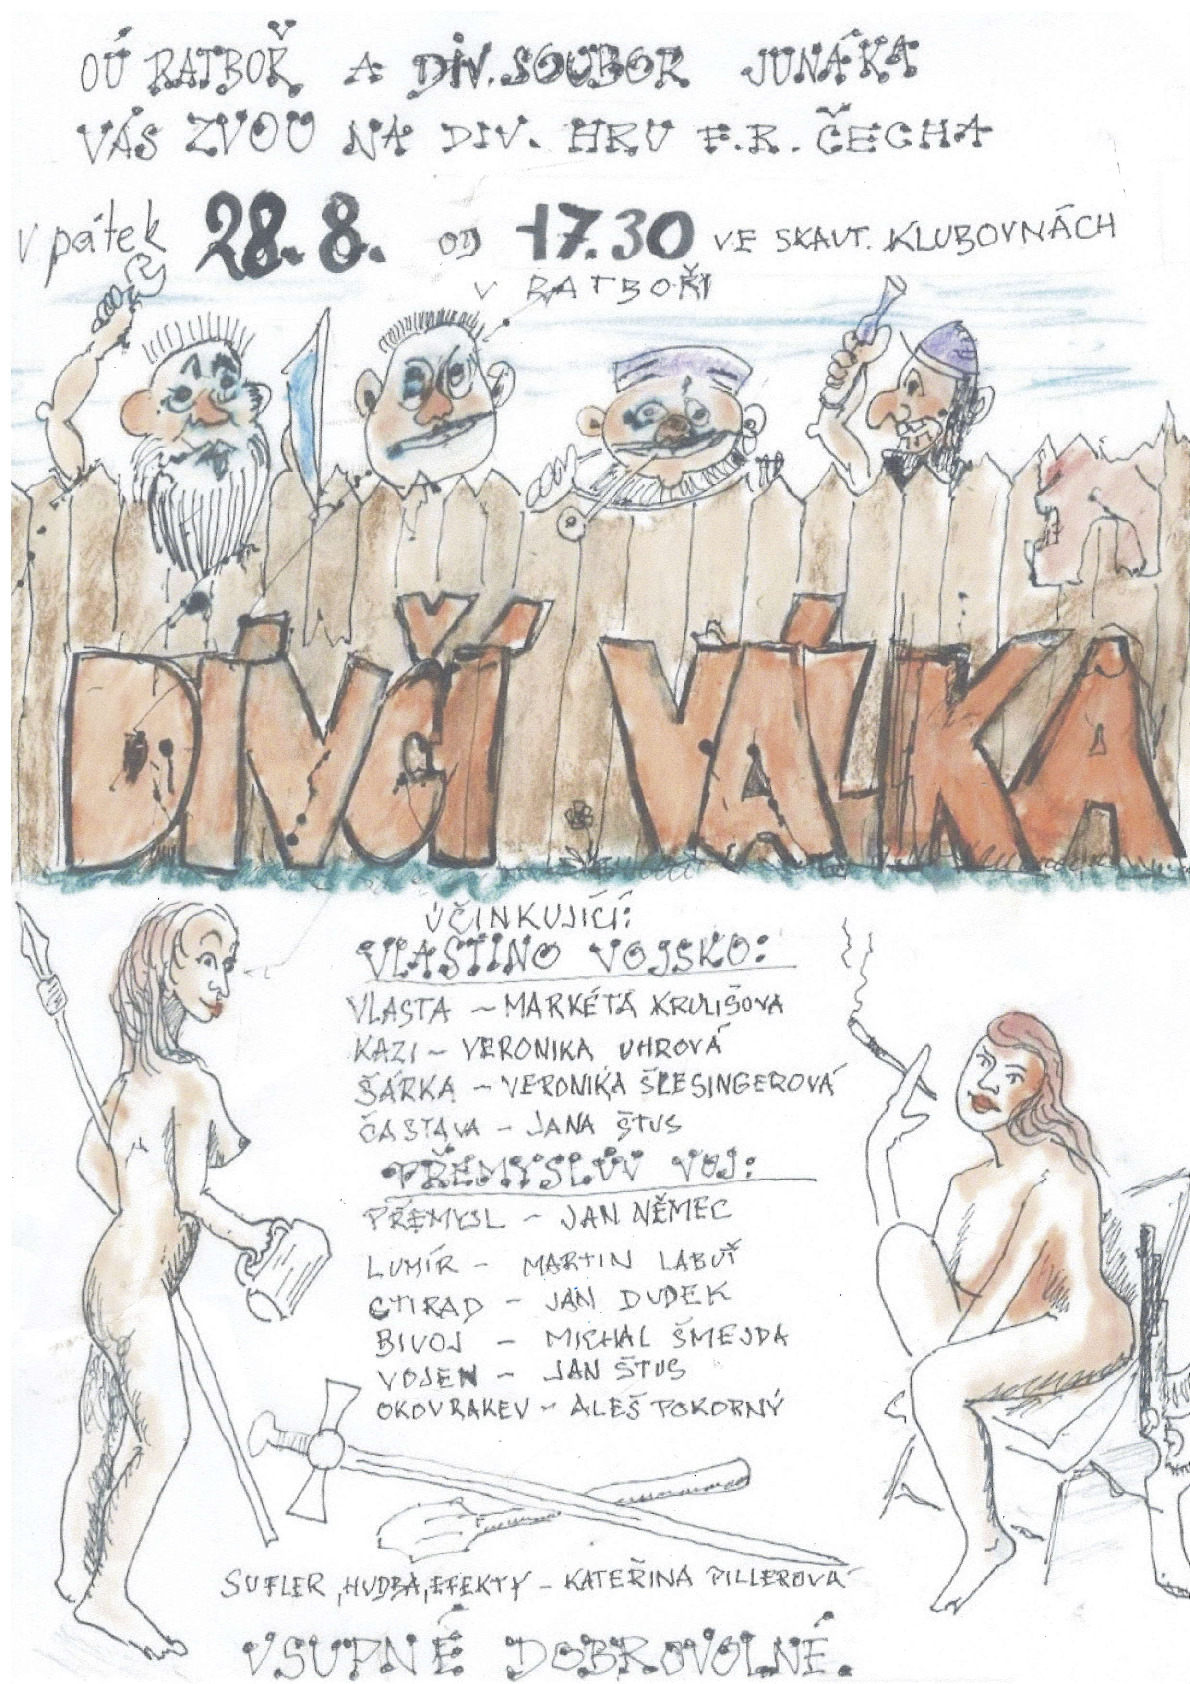 OÚ RATBOŘ A DIV. SOUBOR JUNÁKA
VÁS ZVOU NA DIV. HRU F.R. ČECHA
V pátek 28.8. OD 17.30 VE SKAUT. KLUBOVNÁCH
V RATBOŘI
DÍVČÍ VÁLKA
ÚČINKUJÍCÍ:
VLASTINO VOJSKO:
VLASTA – MARKÉTA KRULIŠOVA
KAZI – VERONIKA UHROVÁ
ŠÁRKA – VERONIKA ŠLESINGEROVÁ
ČASTAVA – JANA ŠTUS
PŘEMYSLŮV VOJ:
PŘEMYSL – JAN NĚMEC
LUMÍR – MARTIN LABUŤ
CTIRAD – JAN DUDEK
BIVOJ – MICHAL ŠMEJDA
VOJEN – JAN ŠTUS
OKOVRAKEV – ALEŠ POKORNÝ
SUFLER, HUDBA, EFEKTY – KATEŘINA PILLEROVÁ
VSUPNÉ DOBROVOLNÉ.